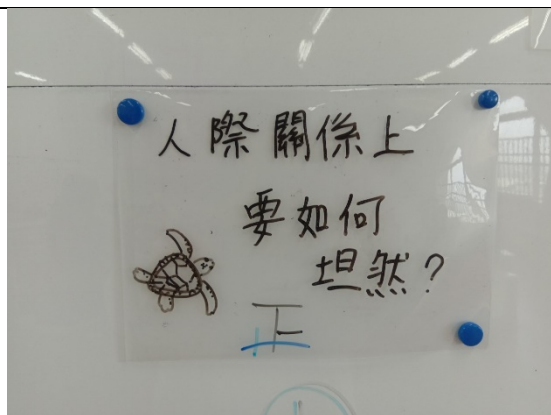 人際關係上
要如何
坦然?
正